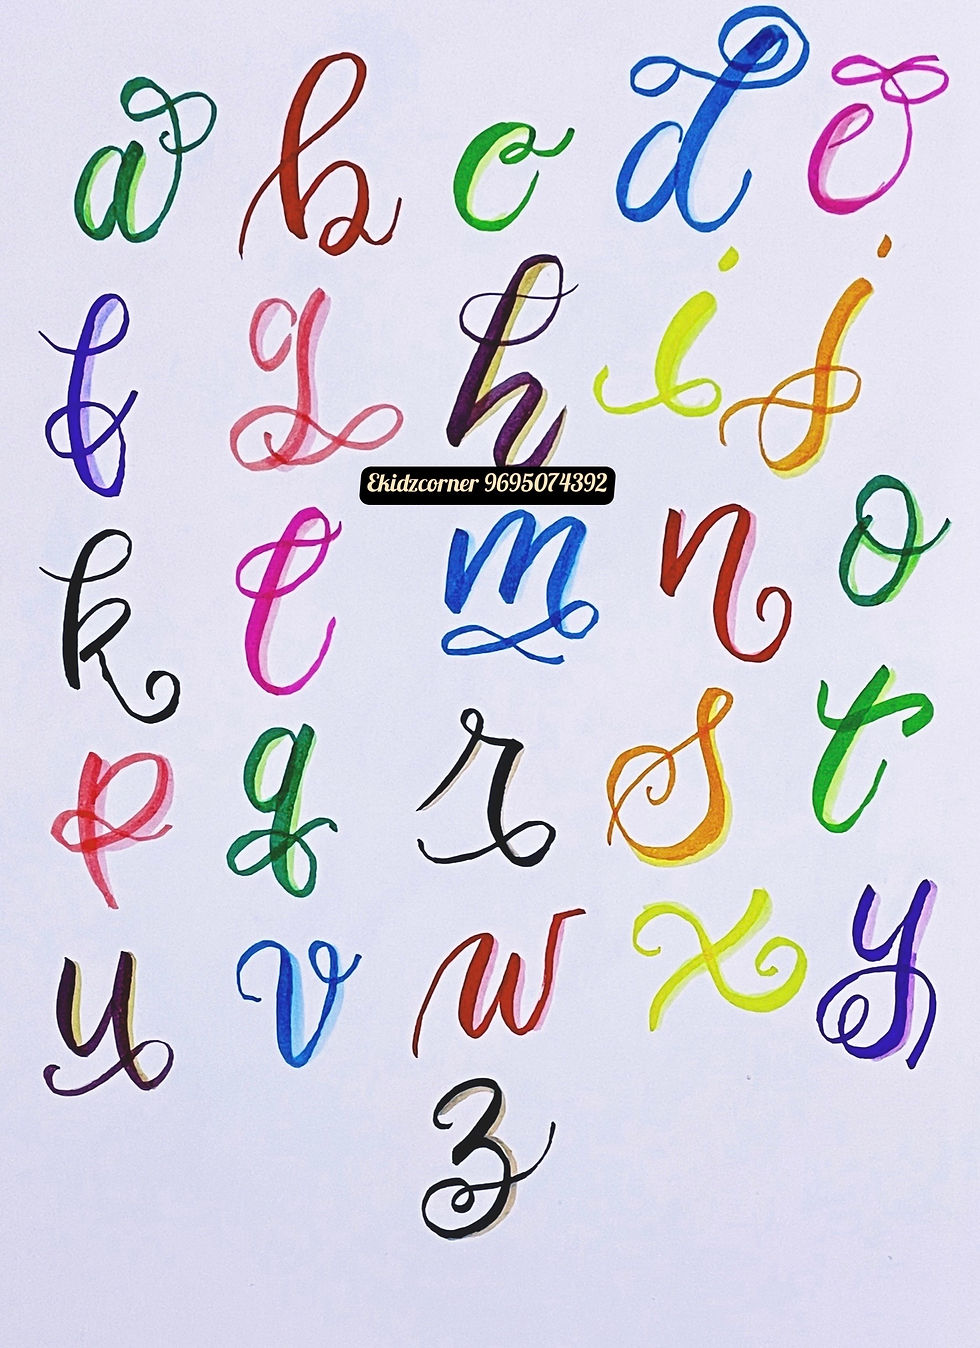 a b c d e
f g h i j
Ekidzcorner 9695074392
k l m n o
p q r s t
u v w x y
z